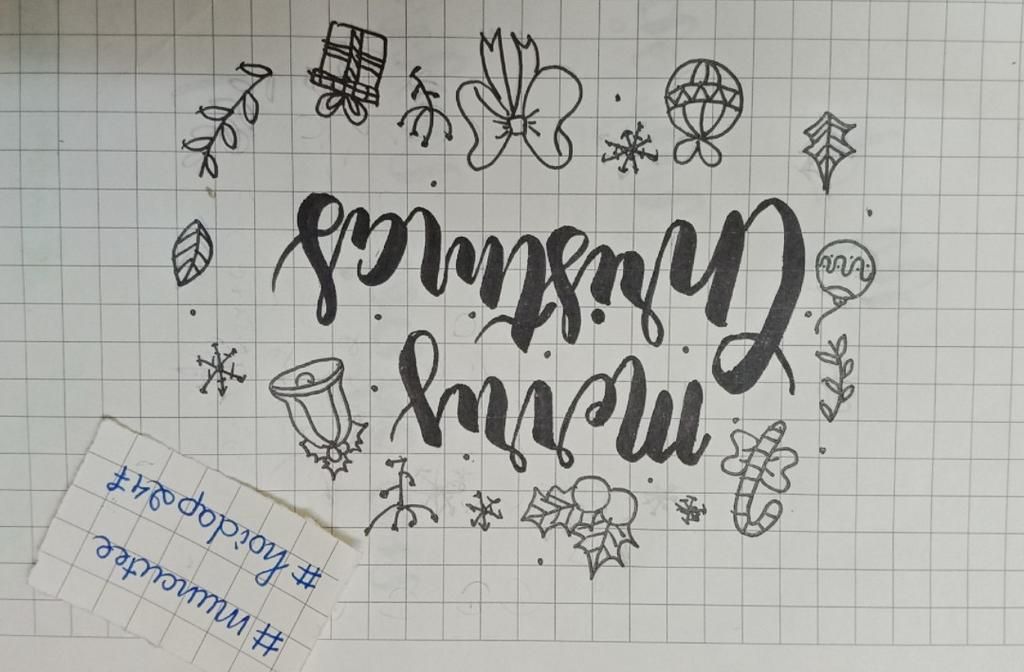 merry
Christmas
#muncutee
#hoidap247